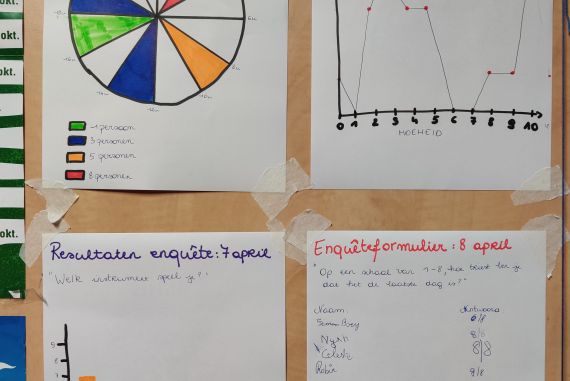 okt.
okt.
okt.
1 persoon
3 personen
5 personen
8 personen
0 1 2 3 4 5 6 7 8 9 10
HOEHEID
Resultaten enquête: 7 april
"Welk instrument speel je?"
9
8
7
Enquêteformulier: 8 april
"Op een schaal van 1-8, hoe triest ben je
dat het de laatste dag is?"
Naam: Antwoord
0/8
8/8
Celeste 8/8
Robin 8/8